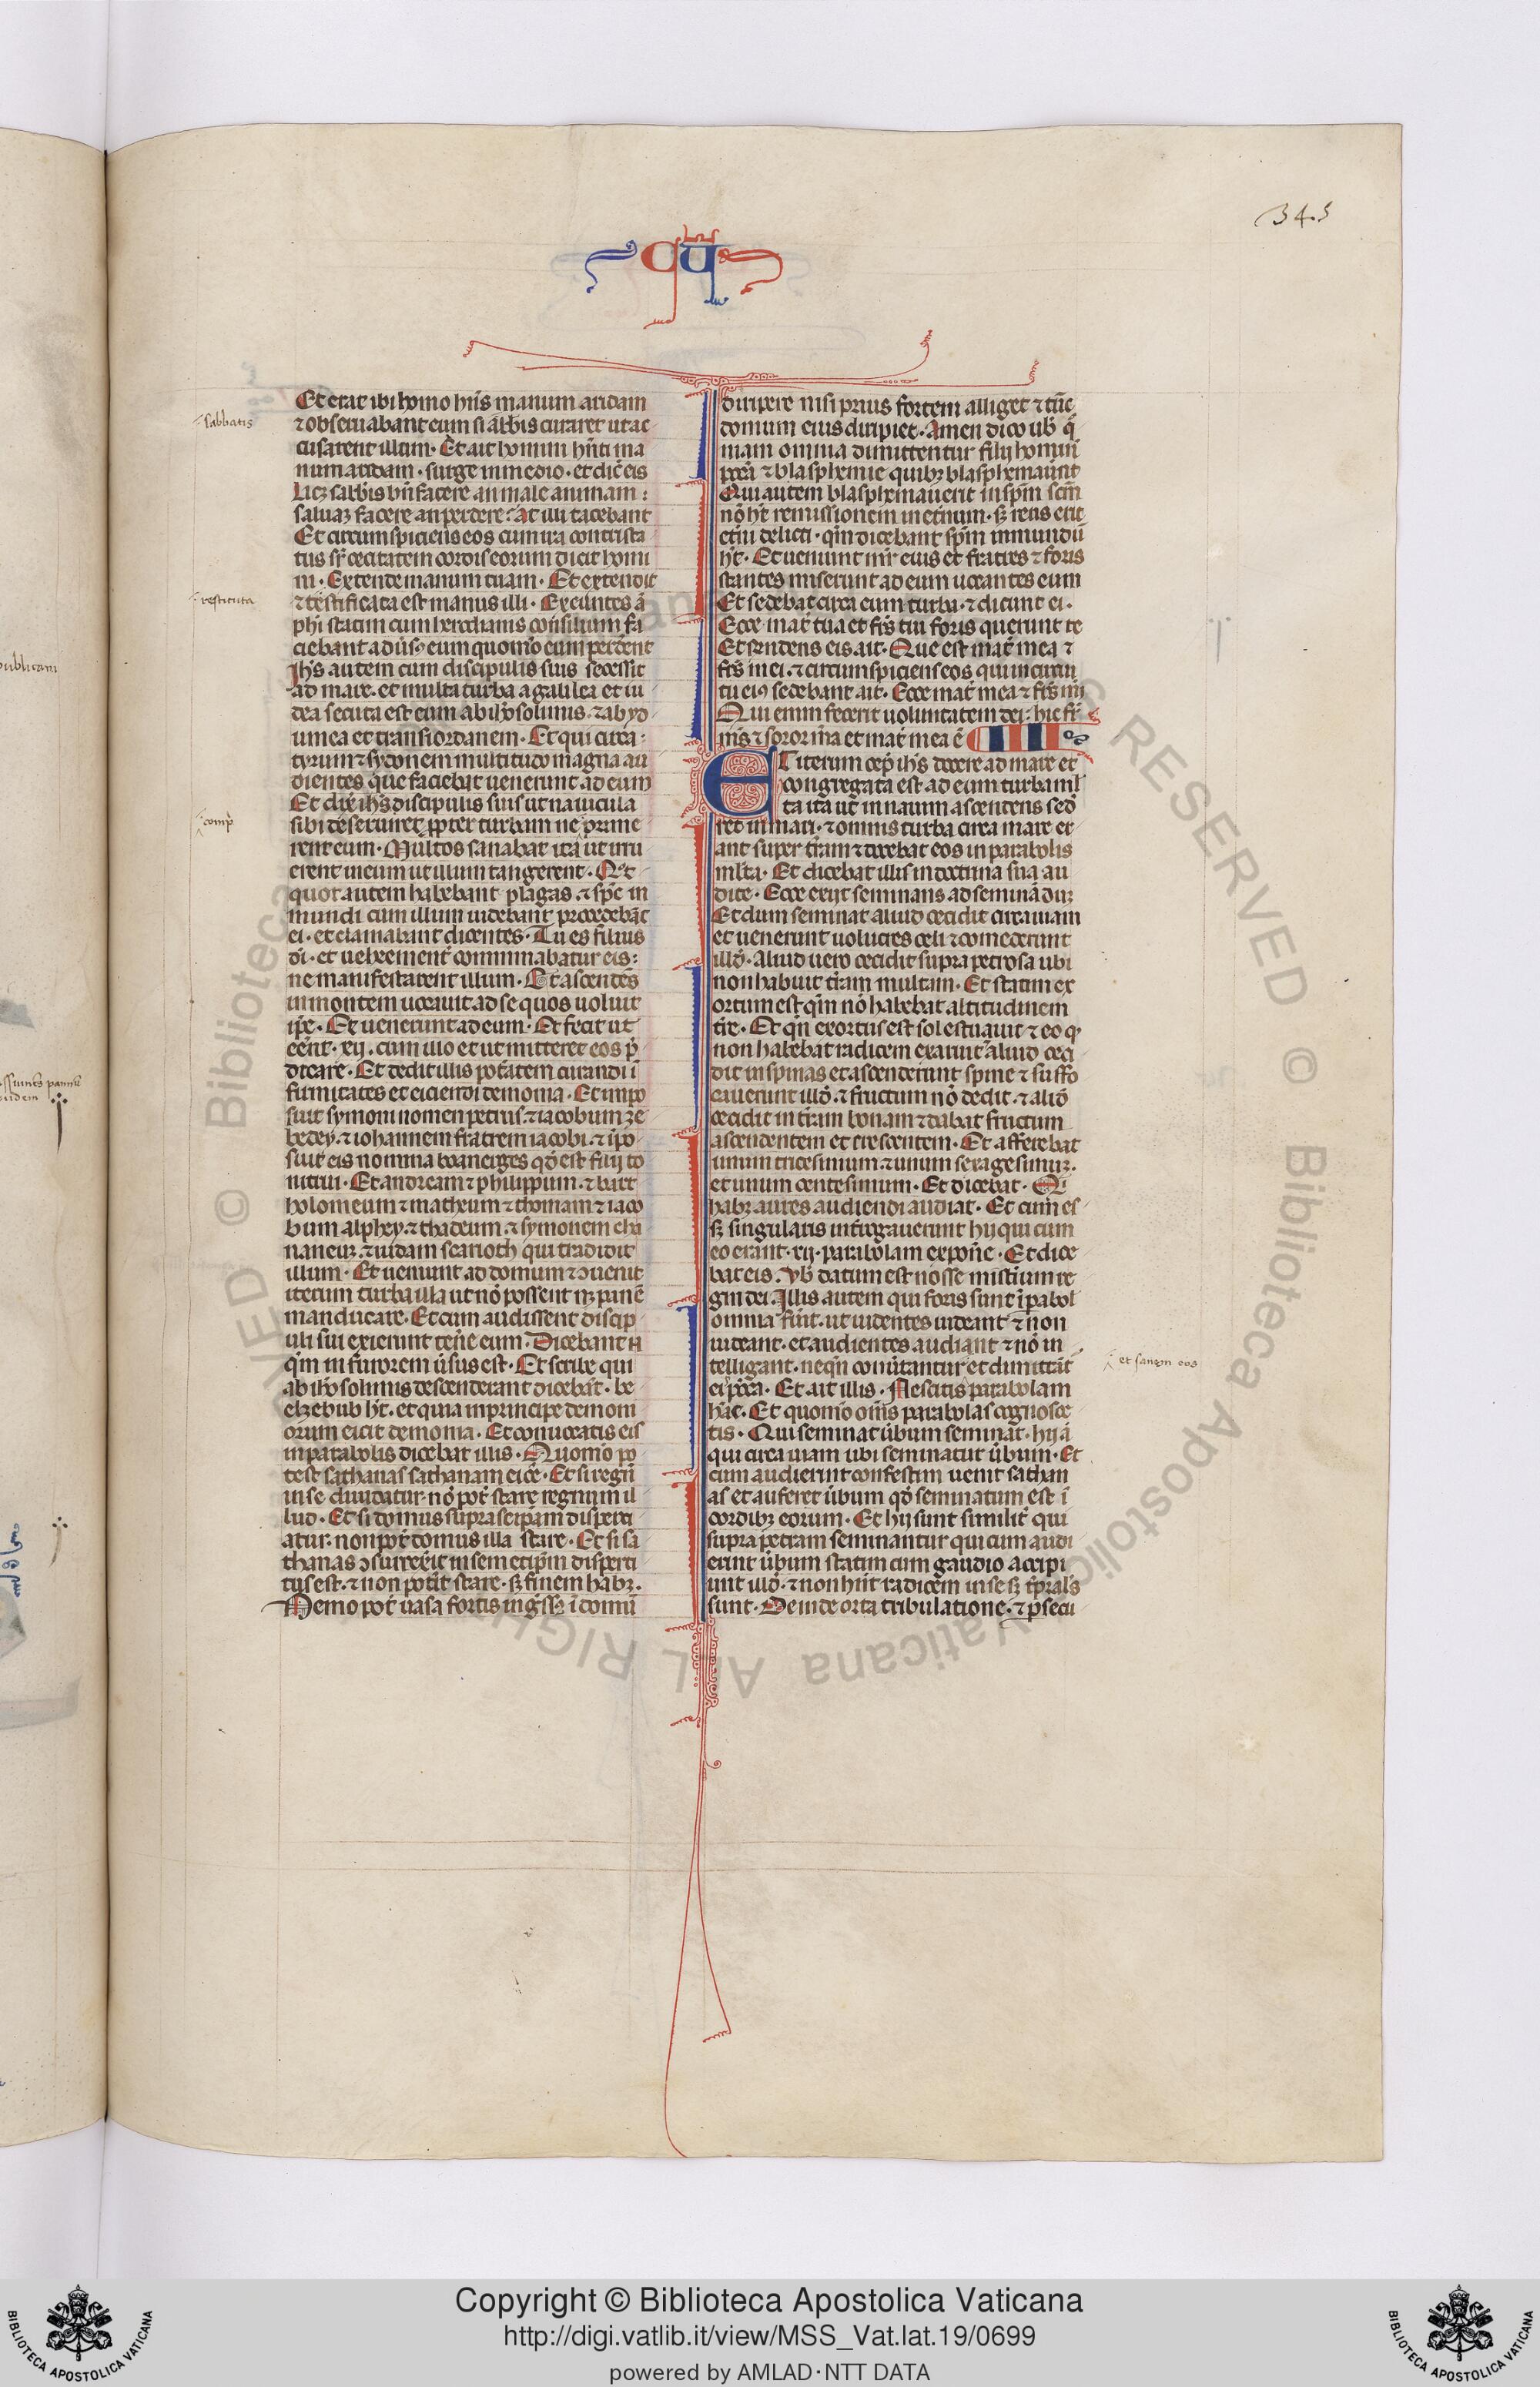 345
CU
Et erat ibi homo hñs manum aridam
⁊ obseruabant eum si sãbbis curaret ut ac
cusarent illum. Et ait homini hñti ma
num aridam. surge in medio. et dic̃ eis
Licꝫ sabb̃is bñ facere an male animam:
saluaꝫ facere an perdere. At illi tacebant
Et circumspiciens eos cum ira contrista
tus sr̃ cecitatem cordis eorum dicit homi
ni. Extende manum tuam. Et extendit
⁊ testificata est manus illi. Exeuntes ã
phi statim cum herodianis consilium fa
ciebant aduſ᷒ eum quom̊o eum perderent
Ih̃s autem cum discipulis suis secessit
ad mare. et multa turba a galilea et iu
dea secuta est eum ab ih̃osolimis. ⁊ ab yd
umea et transiordanem. Et qui circa
tyrum ⁊ sydonem multitudo magna au
dientes que faciebat uenerunt ad eum
Et dix̃ ih̃s discipulis suis ut nauicula
sibi deseruiret ꝓpter turbam ne prime
rent eum. Multos sanabat ita ut irru
erent in eum ut illum tangerent. Q̨t
quot autem habebant plagas. ⁊ sp̃c in
mundi cum illum uidebant procedebãt
ei. et clamabant dicentes. Tu es filius
di. et uehement̃ comminabatur eis:
ne manifestarent illum. Et ascendẽs
in montem uocauit ad se quos uoluit
ip̃e. Et uenerunt ad eum. Et fecit ut
eẽnt. xij. cum illo et ut mitteret eos p̃
dicare. Et dedit illis pot̃atem curandi ĩ
firmitates et eiciendi demonia. Et impo
suit symoni nomen petrus. ⁊ iacobum ze
bedeij. ⁊ iohannem fratrem iacobi. ⁊ ĩpo
suit eis nomina boanerges qď est filij to
nitrui. Et andream ⁊ philippum. ⁊ bart
holomeum ⁊ matheum ⁊ thomam ⁊ iaco
bum alphey. ⁊ thadeum. ⁊ symonem cha
naneuꝫ. ⁊ iudam scarioth qui tradidit
illum. Et ueniunt ad domum ⁊ ɔuenit
iterum turba illa ut nõ possent nꝫ panẽ
manducare. Et cum audissent discip
uli sui exierunt teñe eum. Dicebant .n.
qm̃ in furorem ũsus est. Et scribe qui
ab ih̃osolimis descenderant dicebãt. be
elzebub h̃t. et quia in principe demoni
orum eicit demonia. Et conuocatis eis
in parabolis dicebat illis. Quomõ po
test sathanas sathanam eicẽ. Et si regñ
in se diuidatur. nõ pot̃ stare regnum il
lud. Et si domus supra seip̃am disperti
atur. non pot̃ domus illa stare. Et si sa
thanas ɔsurrex̃it in semetip̃m disperti
tus est. ⁊ non pot̃it stare. sꝫ finem habꝫ.
Nemo pot̃ uasa fortis ingr̃ss᷒ ĩ domũ
diripere nisi prius fortem alliget ⁊ tũc
domum eius diripiet. Amen dico ub̃ q̃
niam omnia dimittentur filijs homin̄
pc̃cã ⁊ blasphemie quibꝫ blasphemauer̃nt
Qui autem blasphemauerit in sp̃m sc̃m
nõ h̃t remissionem in et̃num. sꝫ reus erit
et̃ni delicti. qm̃ dicebant sp̃m inmundũ
h̃t. Et ueniunt mr̃ eius et fratres ⁊ foris
stantes miserunt ad eum uocantes eum
Et sedebat circa eum turba. ⁊ dicunt ei.
Ecce mat̃ tua et fr̃s tui foris querunt te
Et rñdens eis. ait. Que est mat̃ mea ⁊
fr̃s mei. ⁊ circumspiciens eos qui in circui
tu ei᷒ sedebant. ait. Ecce mat̃ mea ⁊ fr̃s mi
Qui enim fecerit uoluntatem dei: hic fr̃
m̃s ⁊ soror m̃a et mat̃ mea ẽ IIII
ET iterum cep̃ ih̃s docere ad mare et
congregata est ad eum turba ml̃
ta ita ut in nauim ascendens sed̃
ret in mari. ⁊ omnis turba circa mare er
ant super tr̃am ⁊ docebat eos in parabolis
ml̃ta. Et dicebat illis in doctrina sua au
dite. Ecce exijt seminans ad seminãduꝫ
Et dum seminat aliud cecidit circa uiam
et uenerunt uolucres celi ⁊ comederunt
illď. Aliud uero cecidit supra petrosa ubi
non habuit tr̃am multam. Et statim ex
ortum est qm̃ nõ habebat altitudinem
tr̃e. Et qñ exortus est sol estuauit ⁊ eo qꝫ
non habebat radicem exaruit aliud ceci
dit in spinas et ascenderunt spine ⁊ suffo
cauerunt illď. ⁊ fructum nõ dedit. ⁊ aliď
cecidit in tr̃am bonam ⁊ dabat fructum
ascendentem et crescentem. Et afferebat
unum tricesimum. ⁊ unum sexagesimuꝫ.
et unum centesimum. Et dicebat. Q̃i
habꝫ aures audiendi audiat. Et cum es
sꝫ singularis int̃rogauerunt hij qui cum
eo erant. xij. parabolam expoñe. Et dice
bat eis. Vb̃ datum est nosse mist̃ium re
gni dei. Illis autem qui foris sunt ĩ parabol̃
omnia fiũt. ut uidentes uideant ⁊ non
uideant. et audientes audiant ⁊ nõ in
telligant. neqñ conũtantur et dimittãt̃
ei pc̃ca. Et ait illis. Nescitis parabolam
hãc. Et quomõ om̃s parabolas cognosce
tis. Qui seminat ũbum seminat. hij ã
qui circa uiam ubi seminatur ũbum. Et
cum audierint confestim uenit sathan
as et auferet ũbum qď seminatum est ĩ
cordibꝫ eorum. Et hij sunt similit̃ qui
supra petram seminantur qui cum audi
erint ũbum statim cum gaudio accipi
unt illď. ⁊ non hñt radicem in se sꝫ tp̃rales
sunt. Deinde orta tribulatione. ⁊ ꝑsecu
sabbatis
restituta
comp̃
et sanem eos
publicani
Copyright © Biblioteca Apostolica Vaticana
http://digi.vatlib.it/view/MSS_Vat.lat.19/0699
powered by AMLAD·NTT DATA
BIBLIOTECA APOSTOLICA VATICANA
BIBLIOTECA APOSTOLICA VATICANA